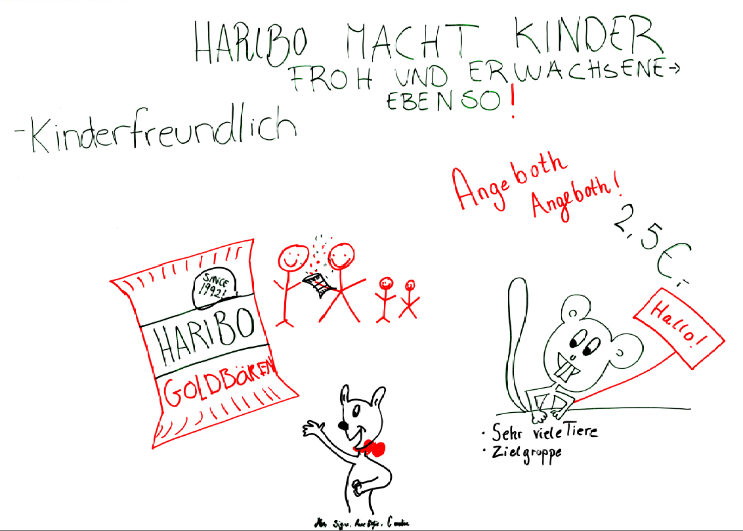 HARIBO MACHT KINDER
FROH UND ERWACHSENE→
EBENSO!
-Kinderfreundlich
Angeboth
Angeboth!
2,5€,-
SINCE
1992!
HARIBO
GOLDBÄREN
Hallo!
· Sehr viele Tiere
· Zielgruppe